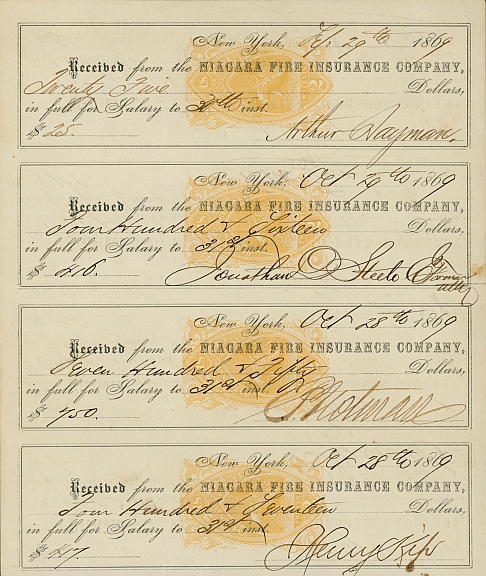 New York, Sep 29th 1869
Received from the NIAGARA FIRE INSURANCE COMPANY,
Twenty Five Dollars,
in full for Salary to 30th inst.
$25. Arthur Sayman.
New York, Oct 29th 1869
Received from the NIAGARA FIRE INSURANCE COMPANY,
Four Hundred & Sixteen Dollars,
in full for Salary to 31st inst.
$416. Jonathan D Steele
New York, Oct 28th 1869
Received from the NIAGARA FIRE INSURANCE COMPANY,
Seven Hundred & Fifty Dollars,
in full for Salary to 31st inst.
$750. P Notman
New York, Oct 28th 1869
Received from the NIAGARA FIRE INSURANCE COMPANY,
Four Hundred & Seventeen Dollars,
in full for Salary to 31st inst.
$417. Henry Kip